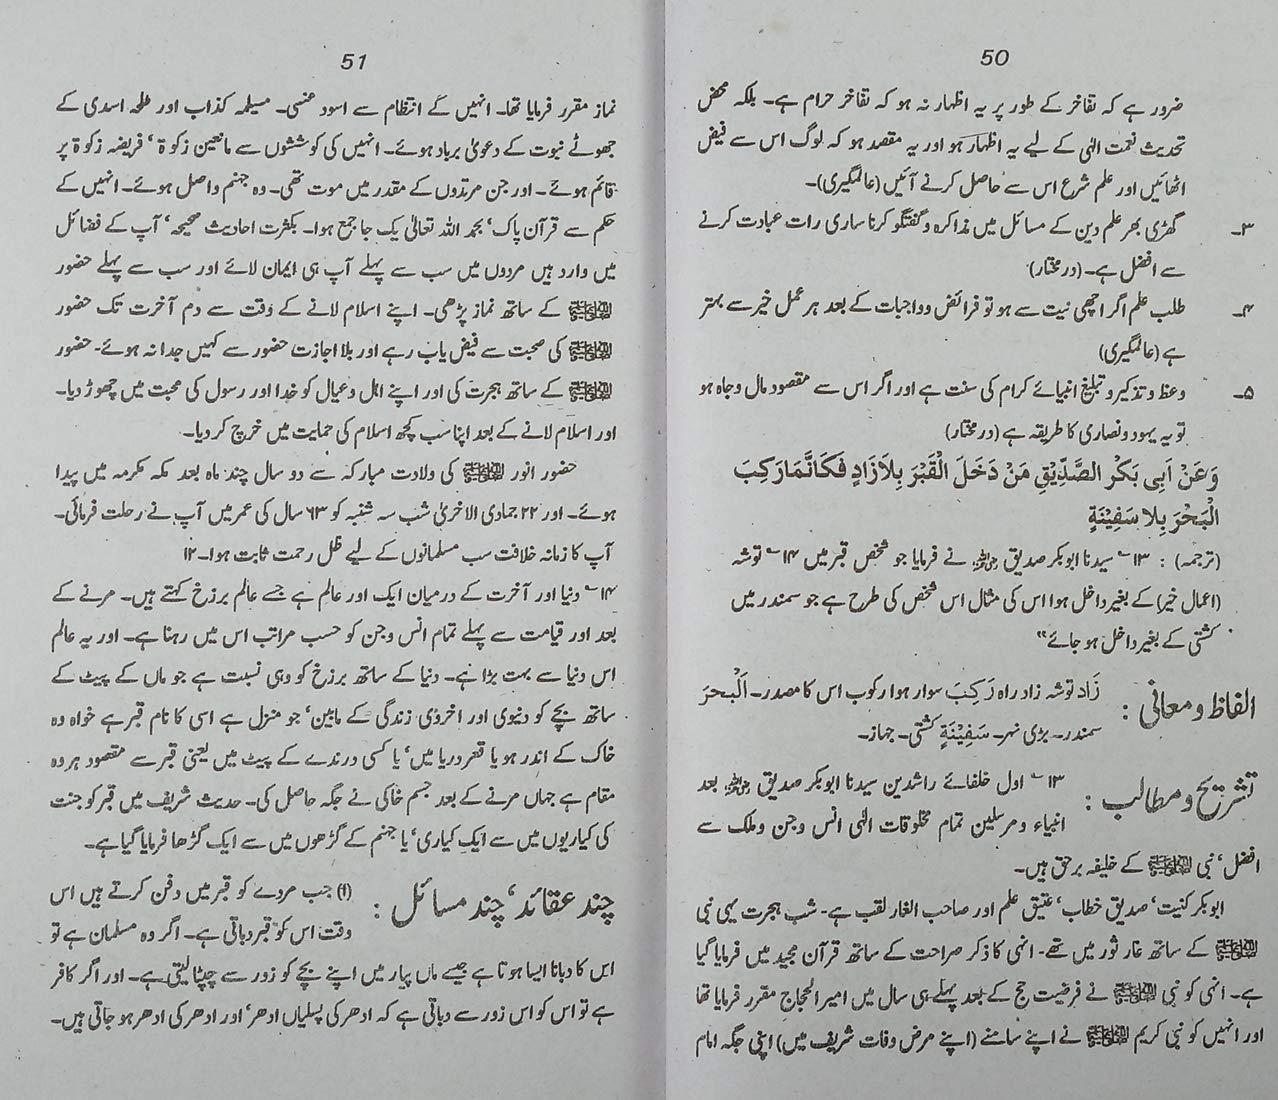 50
ضرور ہے کہ تفاخر کے طور پر یہ اظہار نہ ہو کہ تفاخر حرام ہے۔ بلکہ محض
تحدیث نعمت الٰہی کے لیے یہ اظہار ہو اور یہ مقصد ہو کہ لوگ اس سے فیض
اٹھائیں اور علم شرع اس سے حاصل کرنے آئیں (عالمگیری)۔
۳۔ گھڑی بھر علم دین کے مسائل میں مذاکرہ و گفتگو کرنا ساری رات عبادت کرنے
سے افضل ہے۔ (درمختار)
۴۔ طلب علم اگر اچھی نیت سے ہو تو فرائض و واجبات کے بعد ہر عمل خیر سے بہتر
ہے (عالمگیری)
۵۔ وعظ و تذکیر و تبلیغ انبیائے کرام کی سنت ہے اور اگر اس سے مقصود مال و جاہ ہو
تو یہ یہود و نصاری کا طریقہ ہے (درمختار)
وَعَنْ اَبِی بَکْرِ الصِّدِّیْقِ مَنْ دَخَلَ الْقَبْرَ بِلَا زَادٍ فَکَاَنَّمَا رَکِبَ
الْبَحْرَ بِلَا سَفِیْنَۃٍ
(ترجمہ) : ۱۳؎ سیدنا ابوبکر صدیق رضی اللہ عنہ نے فرمایا جو شخص قبر میں ۱۴؎ توشہ
(اعمال خیر) کے بغیر داخل ہوا اس کی مثال اس شخص کی طرح ہے جو سمندر میں
کشتی کے بغیر داخل ہو جائے“
الفاظ و معانی : زَاد توشہ زاد راہ رَکِبَ سوار ہوا رکوب اس کا مصدر۔ اَلْبحرَ
سمندر۔ بڑی نہر۔ سَفِیْنَۃٍ کشتی۔ جہاز۔
تشریح و مطالب : ۱۳؎ اول خلفائے راشدین سیدنا ابوبکر صدیق رضی اللہ عنہ بعد
انبیاء و مرسلین تمام مخلوقات الٰہی انس و جن و ملک سے
افضل‘ نبی ﷺ کے خلیفہ برحق ہیں۔
ابوبکر کنیت‘ صدیق خطاب‘ عتیق علم اور صاحب الغار لقب ہے۔ شب ہجرت یہی نبی
ﷺ کے ساتھ غار ثور میں تھے۔ انہی کا ذکر صراحت کے ساتھ قرآن مجید میں فرمایا گیا
ہے۔ انہی کو نبی ﷺ نے فرضیت حج کے بعد پہلے ہی سال میں امیر الحجاج مقرر فرمایا تھا
اور انہیں کو نبی کریم ﷺ نے اپنے سامنے (اپنے مرض وفات شریف میں) اپنی جگہ امام
51
نماز مقرر فرمایا تھا۔ انہیں کے انتظام سے اسود عنسی۔ مسیلمہ کذاب اور طلحہ اسدی کے
جھوٹے نبوت کے دعویٰ برباد ہوئے۔ انہیں کی کوششوں سے مانعین زکوۃ‘ فریضہ زکوۃ پر
قائم ہوئے۔ اور جن مرتدوں کے مقدر میں موت تھی۔ وہ جہنم واصل ہوئے۔ انہیں کے
حکم سے قرآن پاک‘ بحمد اللہ تعالیٰ یک جا جمع ہوا۔ بکثرت احادیث صحیحہ‘ آپ کے فضائل
میں وارد ہیں مردوں میں سب سے پہلے آپ ہی ایمان لائے اور سب سے پہلے حضور
ﷺ کے ساتھ نماز پڑھی۔ اپنے اسلام لانے کے وقت سے دم آخرت تک حضور
ﷺ کی صحبت سے فیض یاب رہے اور بلا اجازت حضور سے کہیں جدا نہ ہوئے۔ حضور
ﷺ کے ساتھ ہجرت کی اور اپنے اہل و عیال کو خدا اور رسول کی محبت میں چھوڑ دیا۔
اور اسلام لانے کے بعد اپنا سب کچھ اسلام کی حمایت میں خرچ کر دیا۔
حضور انور ﷺ کی ولادت مبارکہ سے دو سال چند ماہ بعد مکہ مکرمہ میں پیدا
ہوئے۔ اور ۲۲ جمادی الاخریٰ شب سہ شنبہ کو ۶۳ سال کی عمر میں آپ نے رحلت فرمائی۔
آپ کا زمانہ خلافت سب مسلمانوں کے لیے ظل رحمت ثابت ہوا۔ ۱۲
۱۴؎ دنیا اور آخرت کے درمیان ایک اور عالم ہے جسے عالم برزخ کہتے ہیں۔ مرنے کے
بعد اور قیامت سے پہلے تمام انس و جن کو حسب مراتب اس میں رہنا ہے۔ اور یہ عالم
اس دنیا سے بہت بڑا ہے۔ دنیا کے ساتھ برزخ کو وہی نسبت ہے جو ماں کے پیٹ کے
ساتھ بچے کو دنیوی اور اخروی زندگی کے مابین‘ جو منزل ہے اسی کا نام قبر ہے خواہ وہ
خاک کے اندر ہو یا قعر دریا میں‘ یا کسی درندے کے پیٹ میں یعنی قبر سے مقصود ہر وہ
مقام ہے جہاں مرنے کے بعد جسم خاکی نے جگہ حاصل کی۔ حدیث شریف میں قبر کو جنت
کی کیاریوں میں سے ایک کیاری‘ یا جہنم کے گڑھوں میں سے ایک گڑھا فرمایا گیا ہے۔
چند عقائد‘ چند مسائل : (ا) جب مردے کو قبر میں دفن کرتے ہیں اس
وقت اس کو قبر دباتی ہے۔ اگر وہ مسلمان ہے تو
اس کا دبانا ایسا ہوتا ہے جیسے ماں پیار میں اپنے بچے کو زور سے چپٹا لیتی ہے۔ اور اگر کافر
ہے تو اس کو اس زور سے دباتی ہے کہ ادھر کی پسلیاں ادھر‘ اور ادھر کی ادھر ہو جاتی ہیں۔